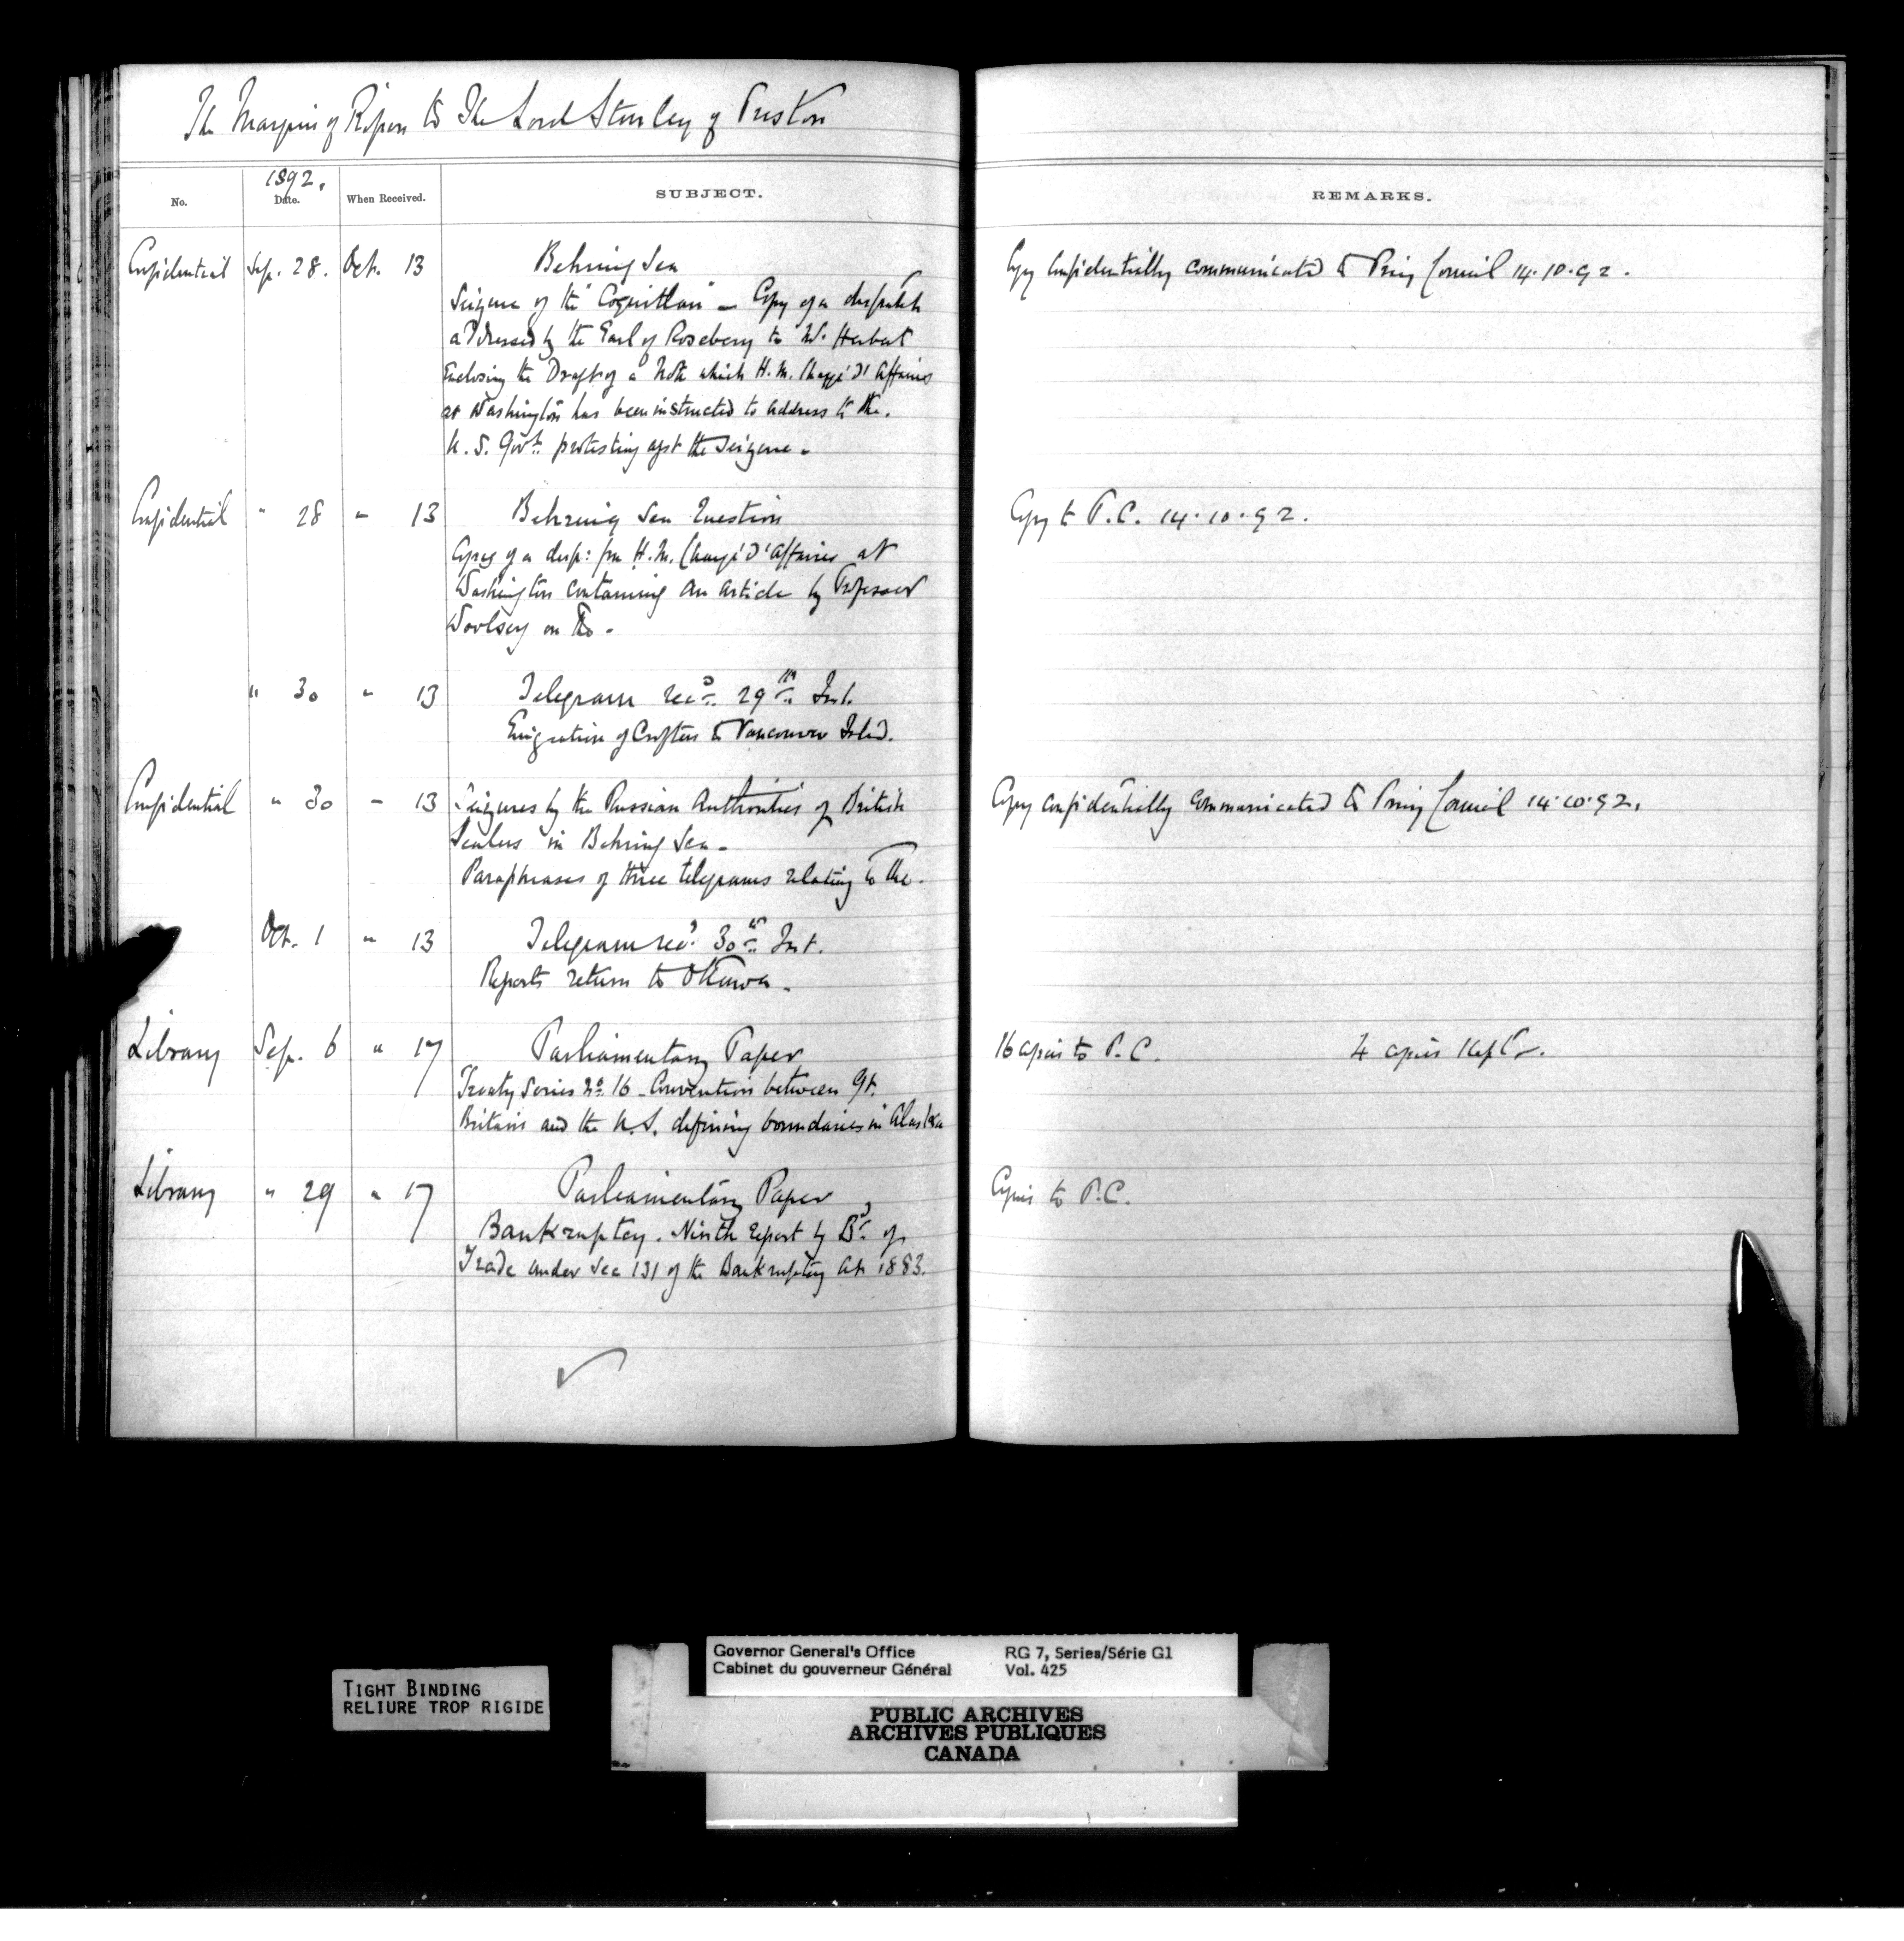 The Marquis of Ripon to The Lord Stanley of Preston
1892.
No. Date. When Received. SUBJECT. REMARKS.
Confidential Sep. 28. Oct. 13 Behring Sea Copy Confidentially communicated to Privy Council 14.10.92.
Seizure of the "Coquitlan" - Copy of a despatch
addressed by the Earl of Rosebery to Mr. Herbert
Enclosing the Draft of a Note which H.M. Chargé d'Affaires
at Washington has been instructed to address to the.
U.S. Govt. protesting agst the Seizure.
Confidential " 28 " 13 Behring Sea Question Copy to P.C. 14.10.92.
Copy of a desp: fm H.M. Chargé d'Affaires at
Washington containing an article by Professor
Woolsey on the.
" 30 " 13 Telegram recd. 29th Inst.
Emigration of Crofters to Vancouver Isld.
Confidential " 30 " 13 Seizures by the Russian Authorities of British Copy confidentially communicated to Privy Council 14.10.92.
Sealers in Behring Sea.
Paraphrases of three telegrams relating to the.
Oct. 1 " 13 Telegram recd. 30th Inst.
Reports return to Ottawa.
Library Sep. 6 " 17 Parliamentary Paper 16 copies to P.C. 4 copies Kept
Treaty Series No. 16 - Convention between Gt.
Britain and the U.S. defining boundaries in Alaska
Library " 29 " 17 Parliamentary Paper Copies to P.C.
Bankruptcy. Ninth report by Bd. of
Trade under Sec 131 of the Bankruptcy Act 1883.
TIGHT BINDING
RELIURE TROP RIGIDE
Governor General's Office RG 7, Series/Série G1
Cabinet du gouverneur Général Vol. 425
PUBLIC ARCHIVES
ARCHIVES PUBLIQUES
CANADA